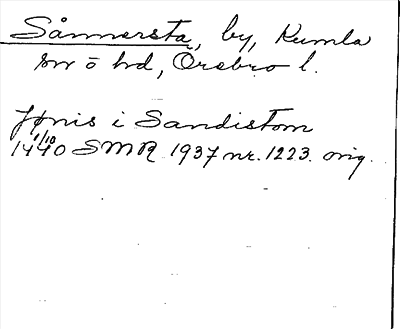 Sånnersta, by, Kumla
sn o hd, Örebro l.
Jønis i Sandistom
1440 1/10 SMR 1937 nr. 1223. orig.